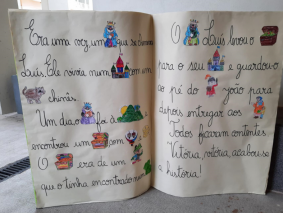 Era uma vez um que se chamava
Luís. Ele vivia num com um
chamás.
Um dia o foi à
encontrou um com
O era de um
que o tenha encontrado num
O Luís levou o
para o seu e guardou-o
ao pé do joão para
depois entregar aos
Todos ficaram contentes
Vitória, vitória, acabou-se
a história!